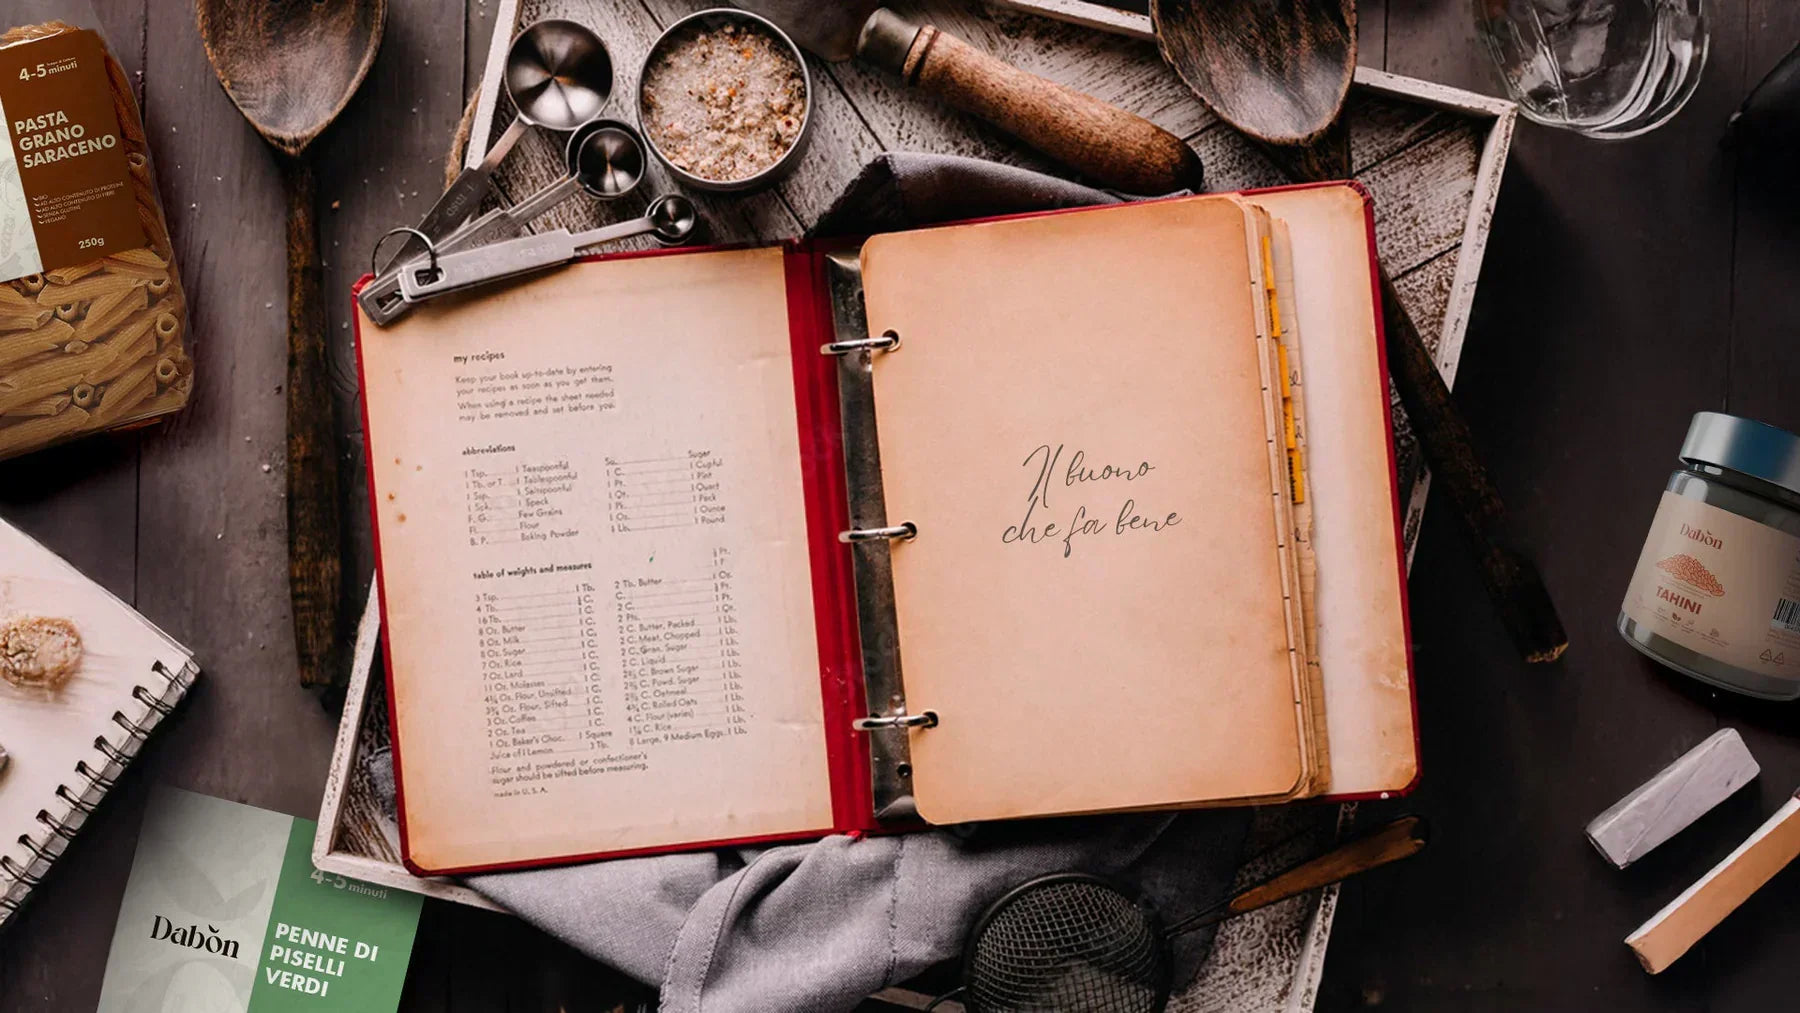 4-5 minuti
PASTA
GRANO
SARACENO
BIO
AD ALTO CONTENUTO DI PROTEINE
AD ALTO CONTENUTO DI FIBRE
SENZA GLUTINE
VEGANO
250g
my recipes
Keep your book up-to-date by entering
your recipes as soon as you get them.
When using a recipe the sheet needed
may be removed and set before you.
abbreviations
1 Tsp. 1 Teaspoonful
1 Tb. or T. 1 Tablespoonful
1 Ssp. 1 Saltspoonful
1 Spk. 1 Speck
F. G. Few Grains
Fl. Flour
B. P. Baking Powder
Su. Sugar
1 C. 1 Cupful
1 Pt. 1 Pint
1 Qt. 1 Quart
1 Pk. 1 Peck
1 Oz. 1 Ounce
1 Lb. 1 Pound
table of weights and measures
3 Tsp. 1 Tb.
4 Tb. C.
16 Tb. 1 C.
8 Oz. Butter 1 C.
8 Oz. Milk 1 C.
8 Oz. Sugar 1 C.
7 Oz. Rice 1 C.
7 Oz. Lard 1 C.
11 Oz. Molasses 1 C.
Oz. Flour, Unsifted 1 C.
Oz. Flour, Sifted 1 C.
3 Oz. Coffee 1 C.
2 Oz. Tea 1 C.
1 Oz. Baker's Choc. 1 Square
Juice of 1 Lemon 3 Tb.
2 Tb. Butter 1 Oz.
2 C. 1 Pt.
2 Pts. 1 Qt.
2 C. Butter, Packed 1 Lb.
2 C. Meat, Chopped 1 Lb.
2 C. Gran. Sugar 1 Lb.
2 C. Liquid 1 Lb.
C. Brown Sugar 1 Lb.
C. Powd. Sugar 1 Lb.
C. Oatmeal 1 Lb.
C. Rolled Oats 1 Lb.
4 C. Flour (varies) 1 Lb.
C. Rice 1 Lb.
8 Large, 9 Medium Eggs 1 Lb.
Flour and powdered or confectioner's
sugar should be sifted before measuring.
made in U. S. A.
Il buono
che fa bene
Dabŏn
TAHINI
4-5 minuti
Dabŏn
PENNE DI
PISELLI
VERDI